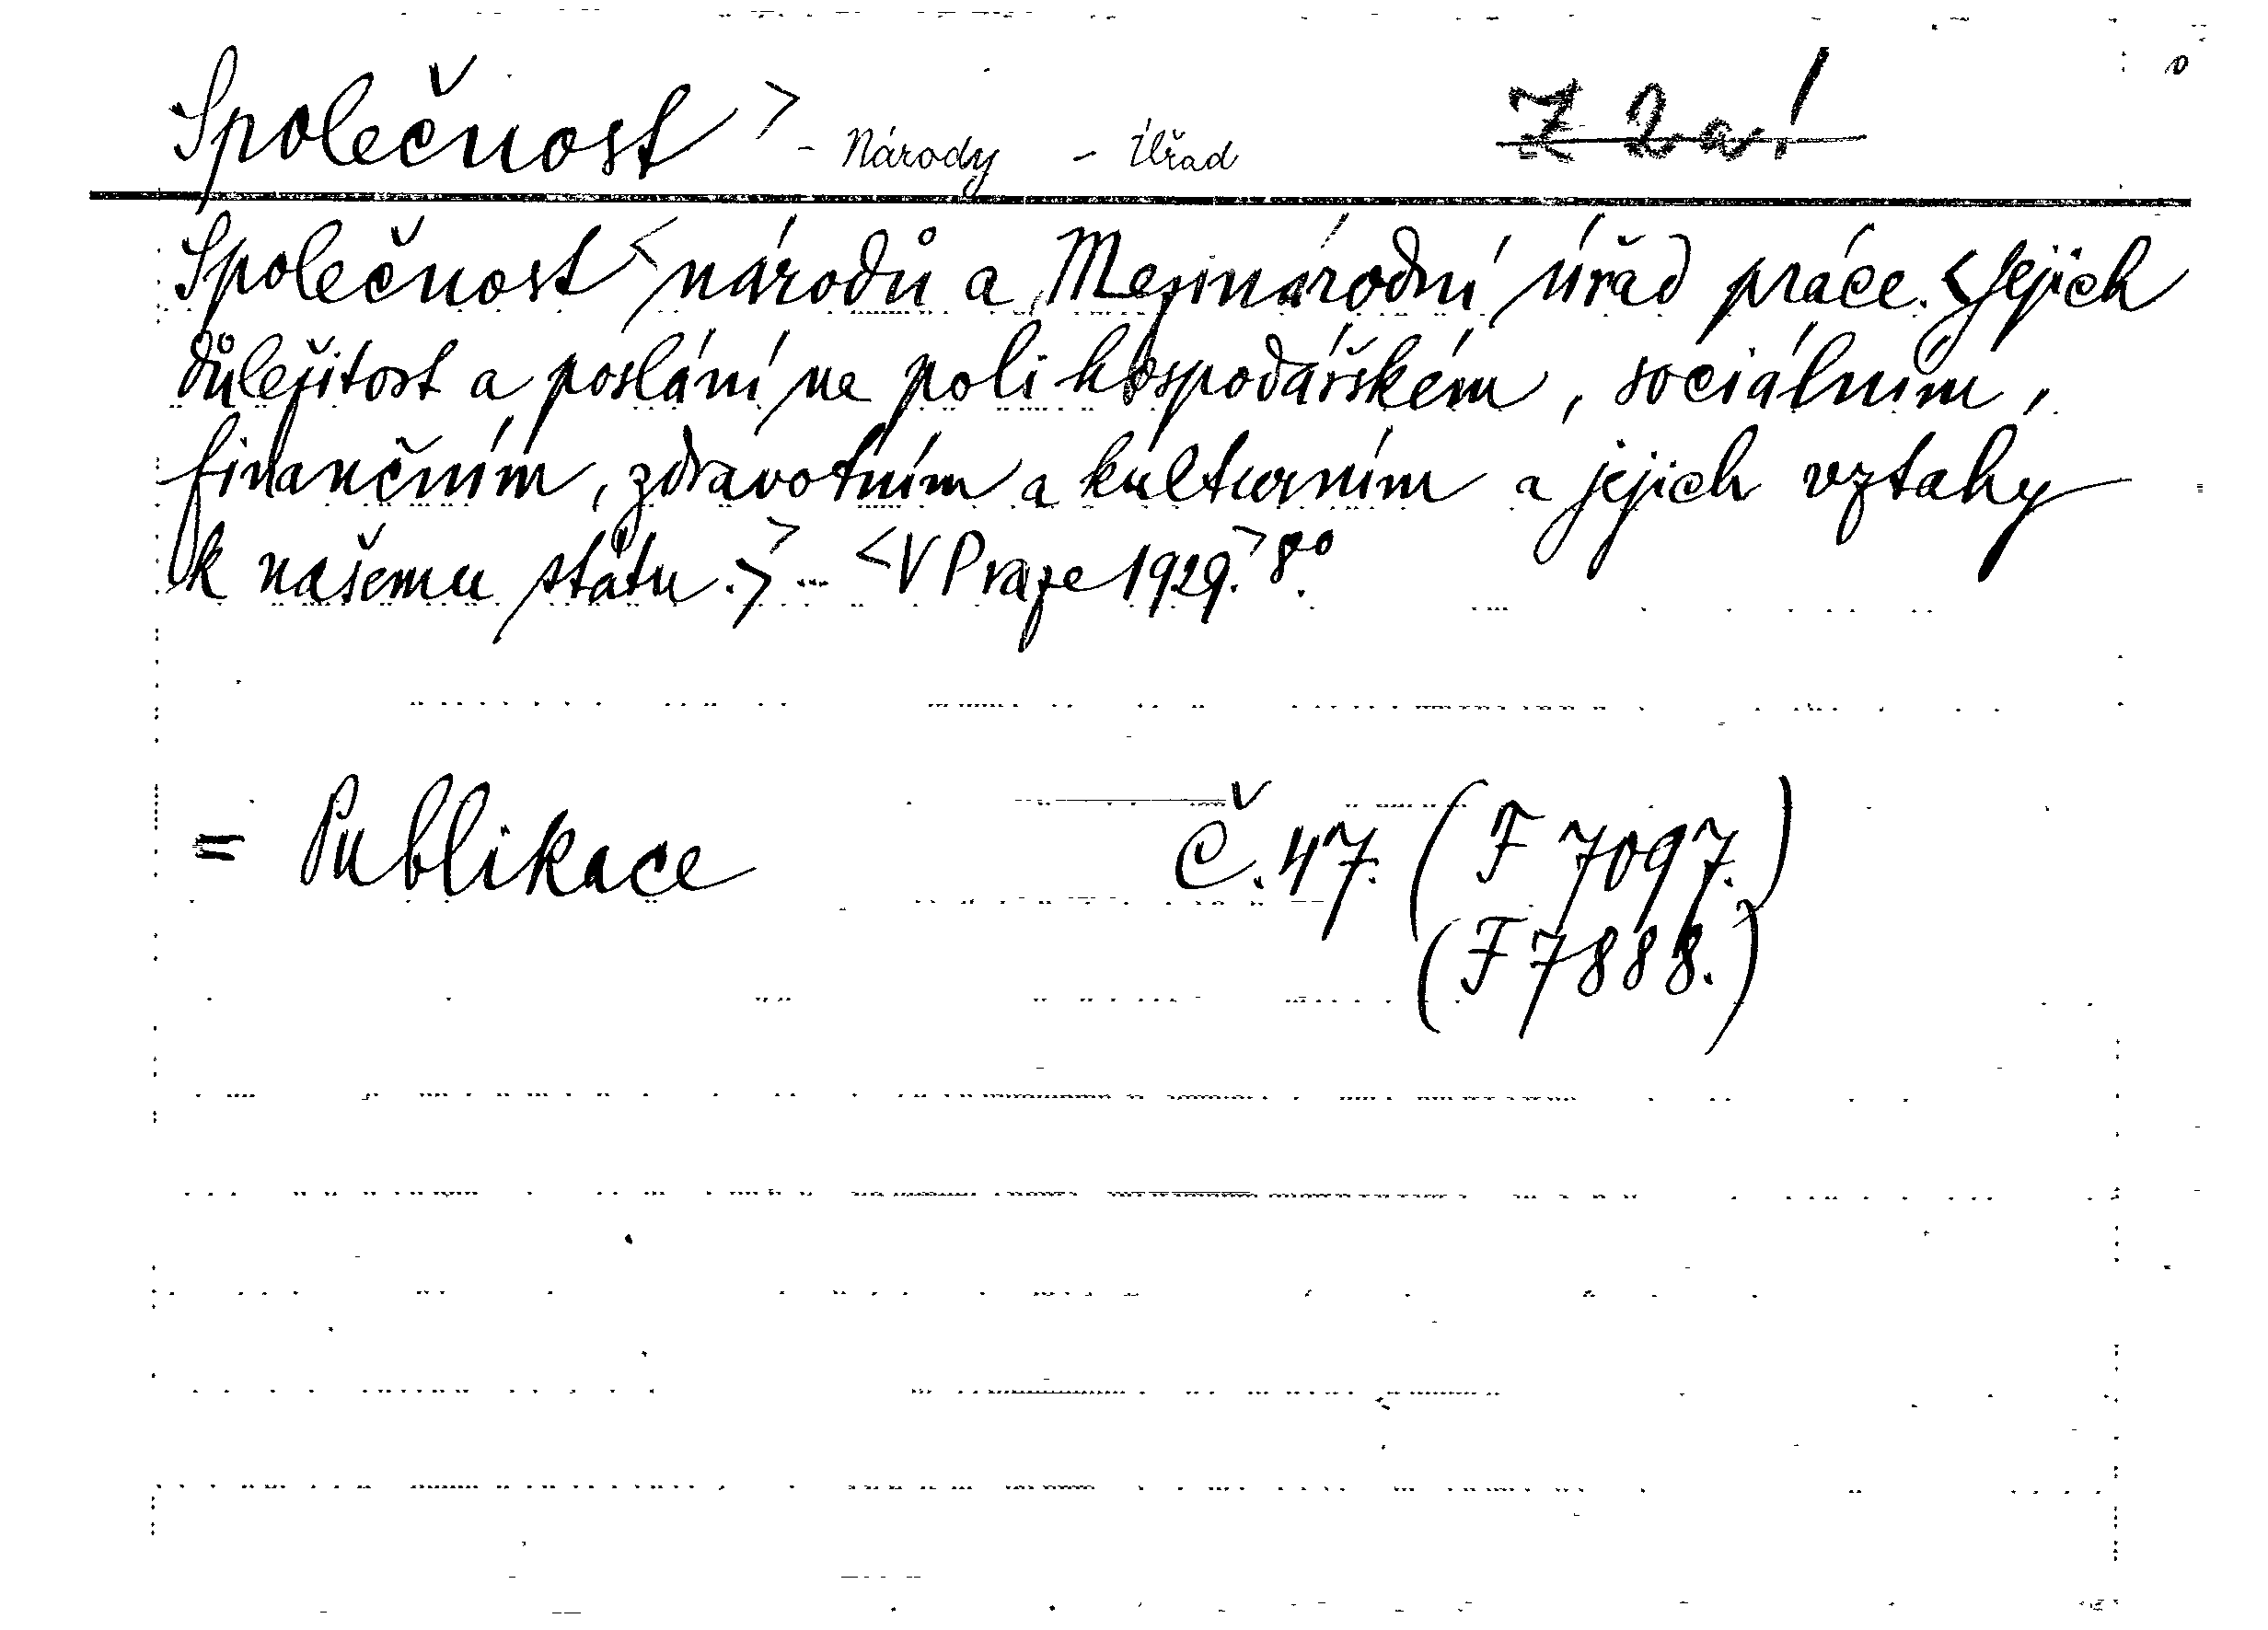 Společnost > - Národy - Úřad Z 2a!
Společnost < národů a Mezinárodní úřad práce. < Jejich
důležitost a poslání na poli hospodářském, sociálním,
finančním, zdravotním a kulturním a jejich vztahy
k našemu státu. > > - < V Praze 1929. > 8°.
= Publikace č. 47. (F 7097.)
(F 7888.)